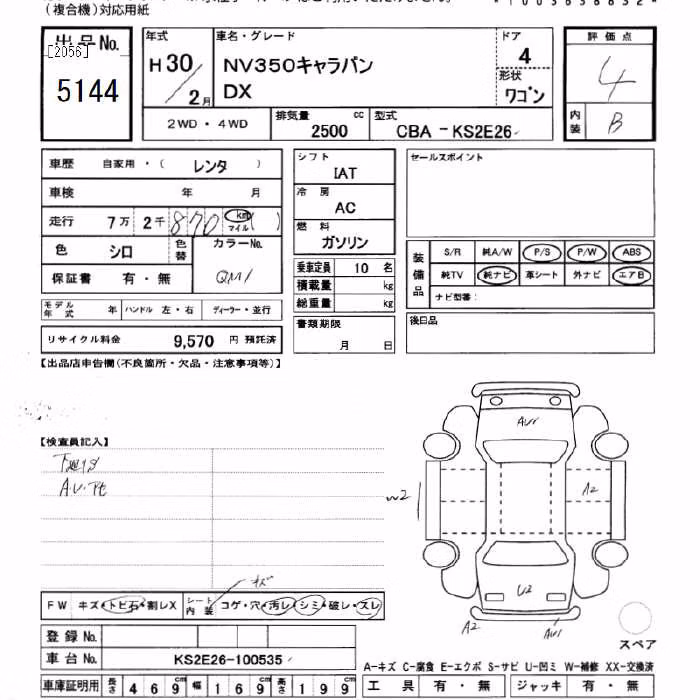 (複合機)対応用紙
出品No.
[2056]
5144
年式
H30/2月
車名・グレード
NV350キャラバン
DX
ドア
4
形状
ワゴン
評価点
4
内装
B
2WD・4WD
排気量
2500
cc
型式
CBA-KS2E26
車歴 自家用・( レンタ )
車検 年 月
走行 7万 2千 870 km マイル ( )
色 シロ 色替 カラーNo. QM1
保証書 有・無
モデル年式 年 ハンドル 左・右 ディーラー・並行
リサイクル料金 9,570 円 預託済
シフト
IAT
冷房
AC
燃料
ガソリン
乗車定員 10 名
積載量 kg
総重量 kg
書類期限
月 日
セールスポイント
装備品
S/R 純A/W P/S P/W ABS
純TV 純ナビ 革シート 外ナビ エアB
ナビ型番:
後日品
【出品店申告欄(不良箇所・欠品・注意事項等)】
【検査員記入】
A.U.Pt
AU1
W2
A2
U2
A2
AU1
スペア
キズ
FW キズ・トビ石・割レX シート内装 コゲ・穴・汚レ・シミ・破レ・スレ
登録No.
車台No. KS2E26-100535
A-キズ C-腐食 E-エクボ S-サビ U-凹ミ W-補修 XX-交換済
車庫証明用 長さ 469cm 幅 169cm 高さ 199cm
工具 有・無 ジャッキ 有・無